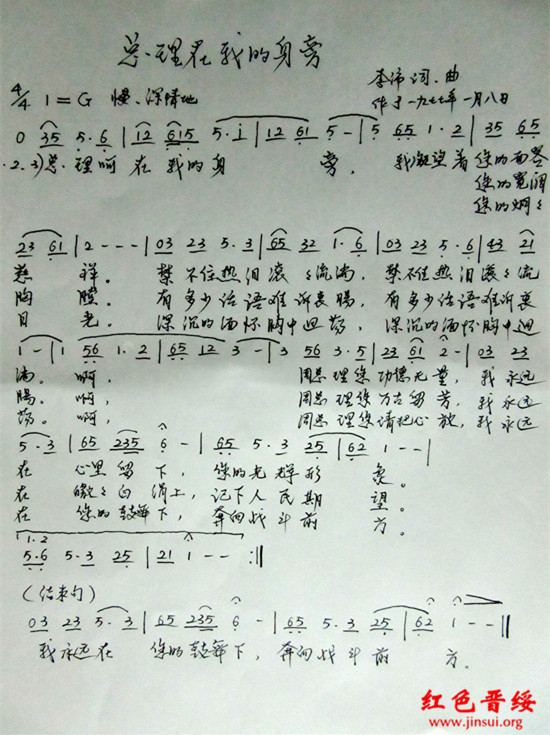 总理在我的身旁
李伟词、曲
4/4 1=G 慢、深情地
作于一九七七年一月八日
0 35 5·6 | 12 615 5·i | 12 61 5 - | 5 65 1·2 | 35 65
1.2.3)总理呵在我的身旁，我凝望着您的面容
您的宽阔
您的炯々
23 61 | 2 - - - | 03 23 5·3 | 65 32 1·6 | 03 23 5·6 | 43 21
慈祥。禁不住热泪滚々流淌，禁不住热泪滚々流
胸膛。有多少话语难诉衷肠，有多少话语难诉衷
目光。深沉的缅怀胸中回荡，深沉的缅怀胸中回
1 - | 1 56 1·2 | 65 12 3 - | 3 56 3·5 | 23 61 2 - | 03 23
淌。啊，周总理您功德无量，我永远
肠。啊，周总理您万古留芳，我永远
荡。啊，周总理您请把心放，我永远
5·3 | 65 235 6 - | 65 5·3 25 | 62 1 - - |
在心里留下，您的光辉形象。
在皑々白绢上，记下人民期望。
在您的鼓舞下，奔向战斗前方。
1.2
5·6 5·3 25 | 21 1 - - :||
(结束句)
03 23 5·3 | 65 235 6 - | 65 5·3 25 | 62 1 - - ||
我永远在您的鼓舞下，奔向战斗前方。
红色晋绥
www.jinsui.org